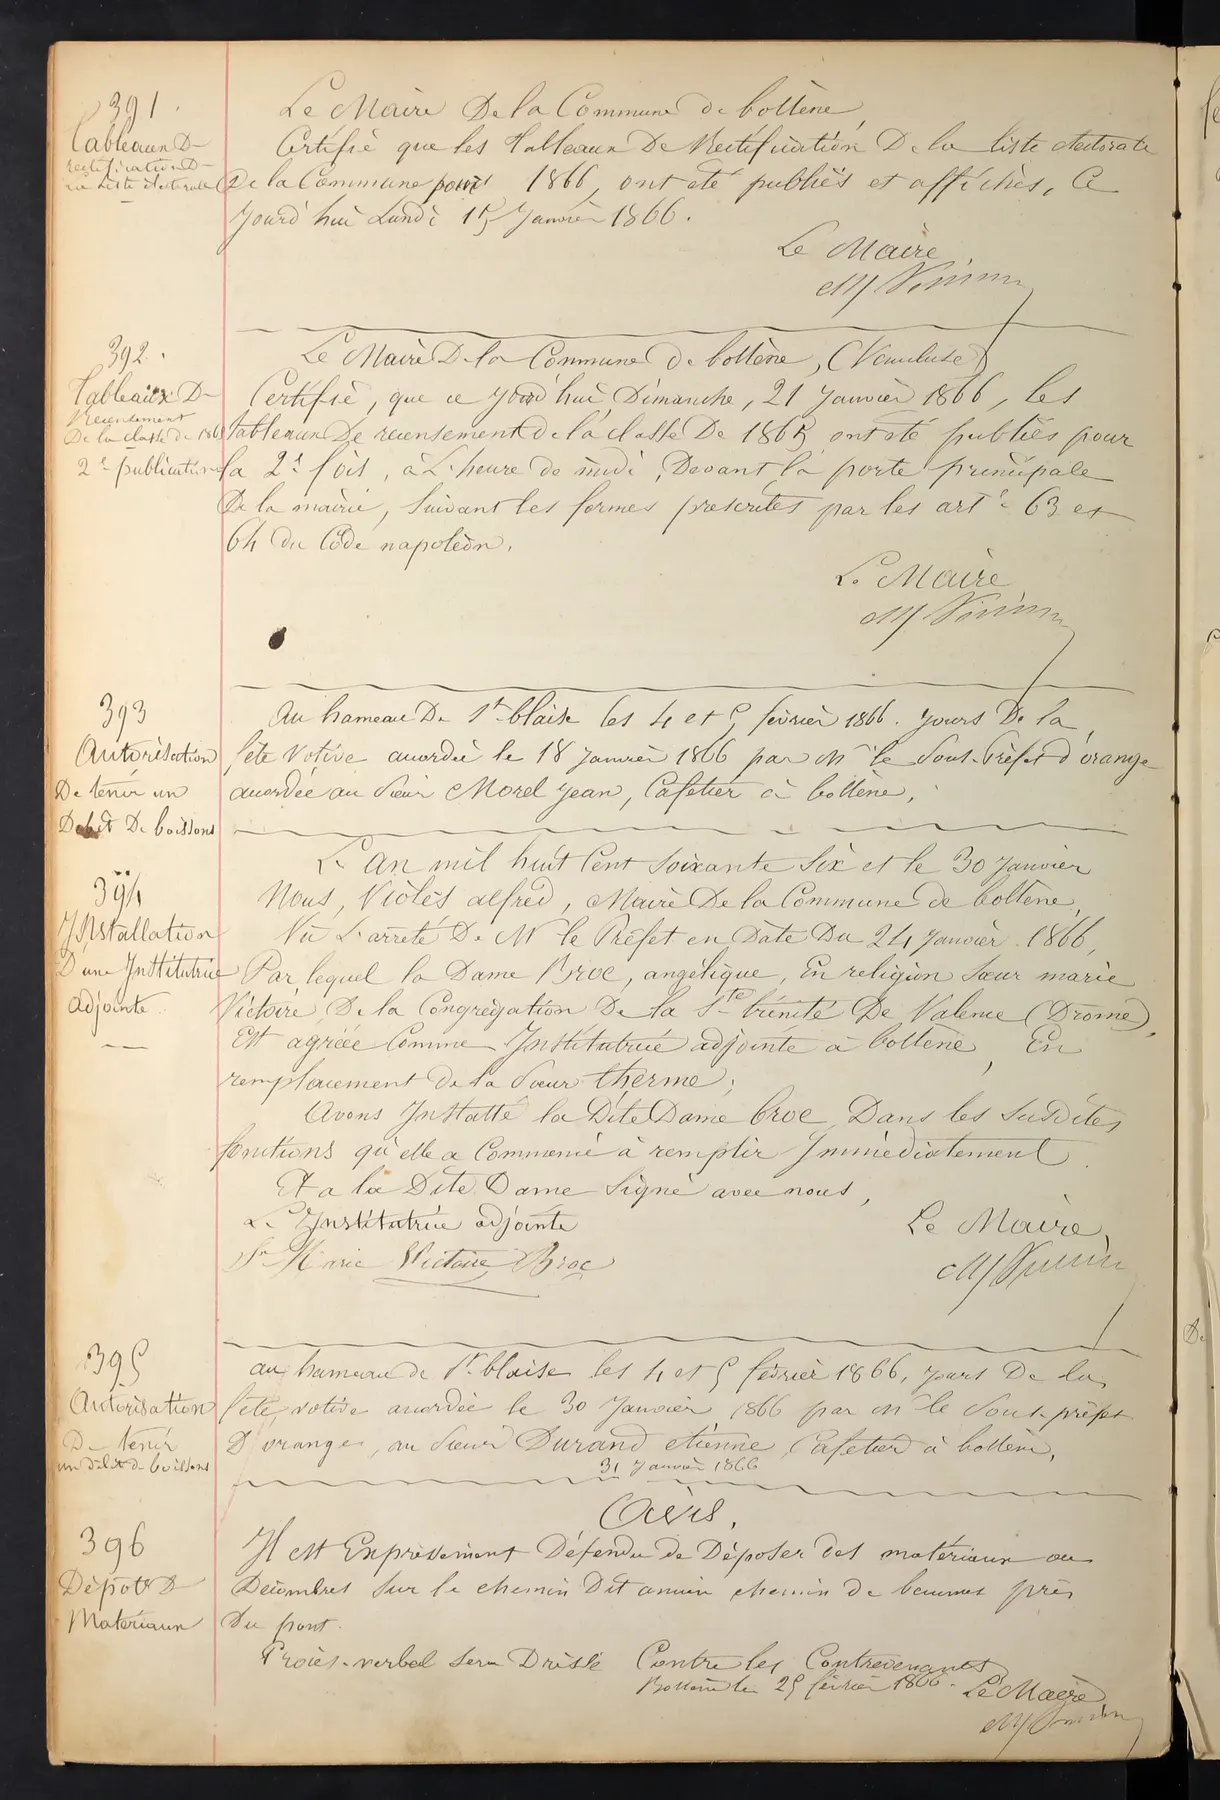 391.
Tableaux De
rectification De
La liste électorale
Le Maire De la Commune de bollène,
Certifie que les Tableaux De Rectification De la liste électorale
De la Commune pour 1866, ont été publiés et affichés, Ce
jourd'hui Lundi 15 Janvier 1866.
Le Maire
392.
Tableaux De
Recensement
De la classe de 1865
2e publication
Le Maire De la Commune de bollène, (Vaucluse)
Certifie, que ce jourd'hui Dimanche, 21 Janvier 1866, les
tableaux De recensement de la classe De 1865 ont été publiés pour
la 2e fois, à L'heure de midi, Devant la porte principale
De la mairie, Suivant les formes prescrites par les art. 63 et
64 du Code napoléon.
Le Maire
393
Autorisation
De tenir un
Debit De boissons
Au hameau De St blaise les 4 et 5 février 1866. jours De la
fête votive accordée le 18 janvier 1866 par Mr le Sous-Préfet d'orange
accordée au Sieur Morel Jean, Cafetier à bollène.
394
Installation
D'une Institutrice
adjointe
L'an mil huit Cent soixante Six et le 30 Janvier
Nous, Violès alfred, Maire De la Commune de bollène,
Vu L'arrêté De Mr le Préfet en Date Du 24 Janvier 1866,
Par lequel la Dame Broc, angélique, En religion Sœur marie
Victoire, De la Congrégation De la Ste trinité De Valence (Drome),
Est agréée Comme Institutrice adjointe à bollène, En
remplacement de la Sœur therme;
Avons Installé la Dite Dame broc, Dans les Susdites
fonctions qu'elle a Commencé à remplir Immédiatement
Et a la Dite Dame Signé avec nous,
L'Institutrice adjointe
Sr Marie Victoire Broc
Le Maire,
395
Autorisation
De tenir
un débit de boissons
au hameau de St blaise les 4 et 5 février 1866, jours De la
fête votive accordée le 30 Janvier 1866 par Mr le Sous-préfet
D'orange, au Sieur Durand etienne Cafetier à bollène,
31 Janvier 1866
396
Dépots De
Matériaux
Avis,
Il est Expressément Défendu de Déposer des matériaux ou
Décombres Sur le chemin Dit ancien chemin de baumes près
Du pont.
Procès-verbal Sera Dressé Contre les Contrevenants
Bollène le 25 février 1866. Le Maire